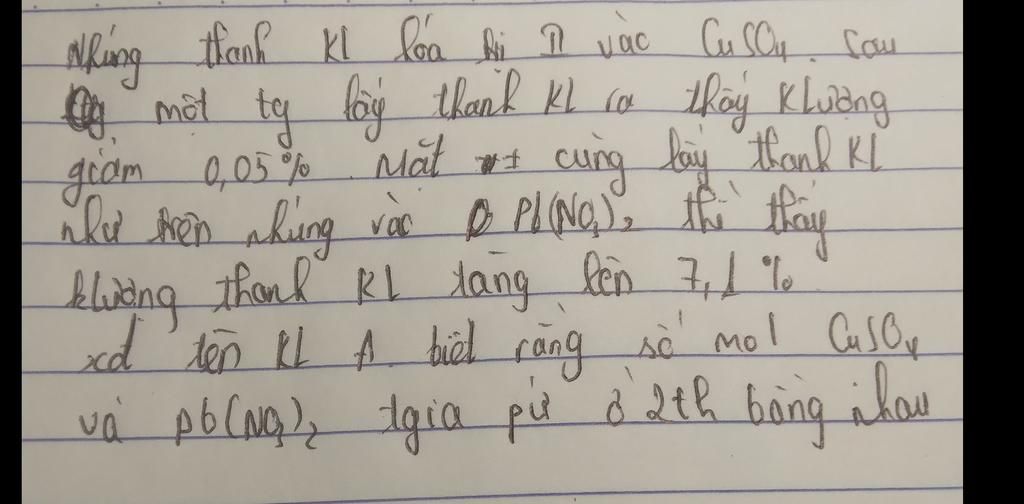 Nhúng thanh Kl hóa trị II vào CuSO4. Sau
một tg lấy thanh Kl ra thấy Klượng
giảm 0,05%. Mặt ≠ cũng lấy thanh Kl
như trên nhúng vào Pb(NO3)2 thì thấy
klượng thanh Kl tăng lên 7,1%
xđ tên KL A biết rằng số mol CuSO4
và Pb(NO3)2 tgia pứ ở 2th bằng nhau